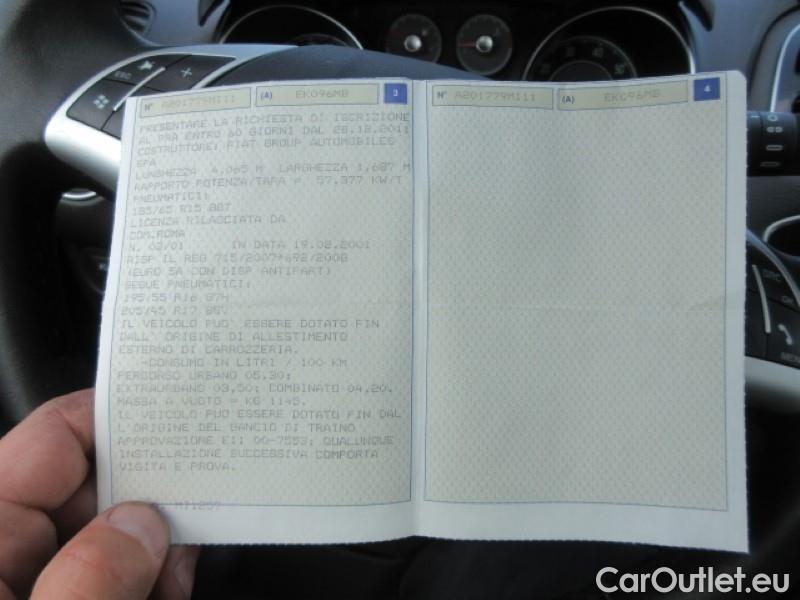 N° A201779MI11 (A) EK096MB 3
PRESENTARE LA RICHIESTA DI ISCRIZIONE
AL PRA ENTRO 60 GIORNI DAL 28.12.2011
COSTRUTTORE: FIAT GROUP AUTOMOBILES
SPA
LUNGHEZZA 4,065 M LARGHEZZA 1,687 M
RAPPORTO POTENZA/TARA = 57,377 KW/T
PNEUMATICI:
185/65 R15 88T
LICENZA RILASCIATA DA
COM.ROMA
N. 03/01 IN DATA 19.02.2001
RISP IL REG 715/2007*692/2008
(EURO 5A CON DISP ANTIPART)
SEGUE PNEUMATICI:
195/55 R16 87H
205/45 R17 88V
IL VEICOLO PUO' ESSERE DOTATO FIN
DALL' ORIGINE DI ALLESTIMENTO
ESTERNO DI CARROZZERIA.
CONSUMO IN LITRI / 100 KM
PERCORSO URBANO 05,30;
EXTRAURBANO 03,50; COMBINATO 04,20.
MASSA A VUOTO = KG 1145.
IL VEICOLO PUO' ESSERE DOTATO FIN DAL
L'ORIGINE DEL GANCIO DI TRAINO
APPROVAZIONE E11 00-7553; QUALUNQUE
INSTALLAZIONE SUCCESSIVA COMPORTA
VISITA E PROVA.
MI1257
N° A201779MI11 (A) EK096MB 4
ESC
SRC
MENU
CarOutlet.eu